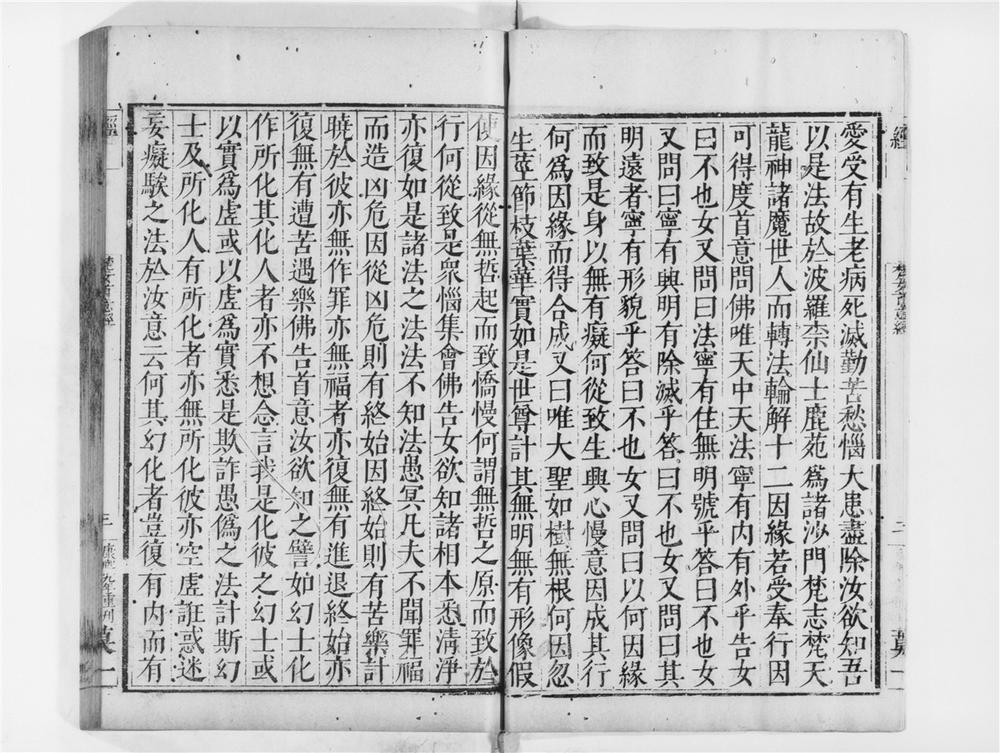 愛受有生老病死滅勤苦愁惱大患盡除汝欲知吾
以是法故於波羅柰仙士鹿苑爲諸沙門梵志梵天
龍神諸魔世人而轉法輪解十二因緣若受奉行因
可得度首意問佛唯天中天法寧有内有外乎告女
曰不也女又問曰法寧有住無明號乎答曰不也女
又問曰寧有興明有除滅乎答曰不也女又問曰其
明遠者寧有形貌乎答曰不也女又問曰以何因緣
而致是身以無有癡何從致生興心慢意因成其行
何爲因緣而得合成又曰唯大聖如樹無根何因忽
生莖節枝葉華實如是世尊計其無明無有形像假
使因緣從無哲起而致憍慢何謂無哲之原而致於
行何從致是衆惱集會佛告女欲知諸相本悉淸淨
亦復如是諸法之法法不知法愚冥凡夫不聞罪福
而造凶危因從凶危則有終始因終始則有苦樂計
曉於彼亦無作罪亦無福者亦復無有進退終始亦
復無有遭苦遇樂佛告首意汝欲知之譬如幻士化
作所化其化人者亦不想念言我是化彼之幻士或
以實爲虛或以虛爲實悉是欺詐愚僞之法計斯幻
士及所化人有所化者亦無所化彼亦空虛誑惑迷
妄癡騃之法於汝意云何其幻化者豈復有内而有
經
梵女首意經
三